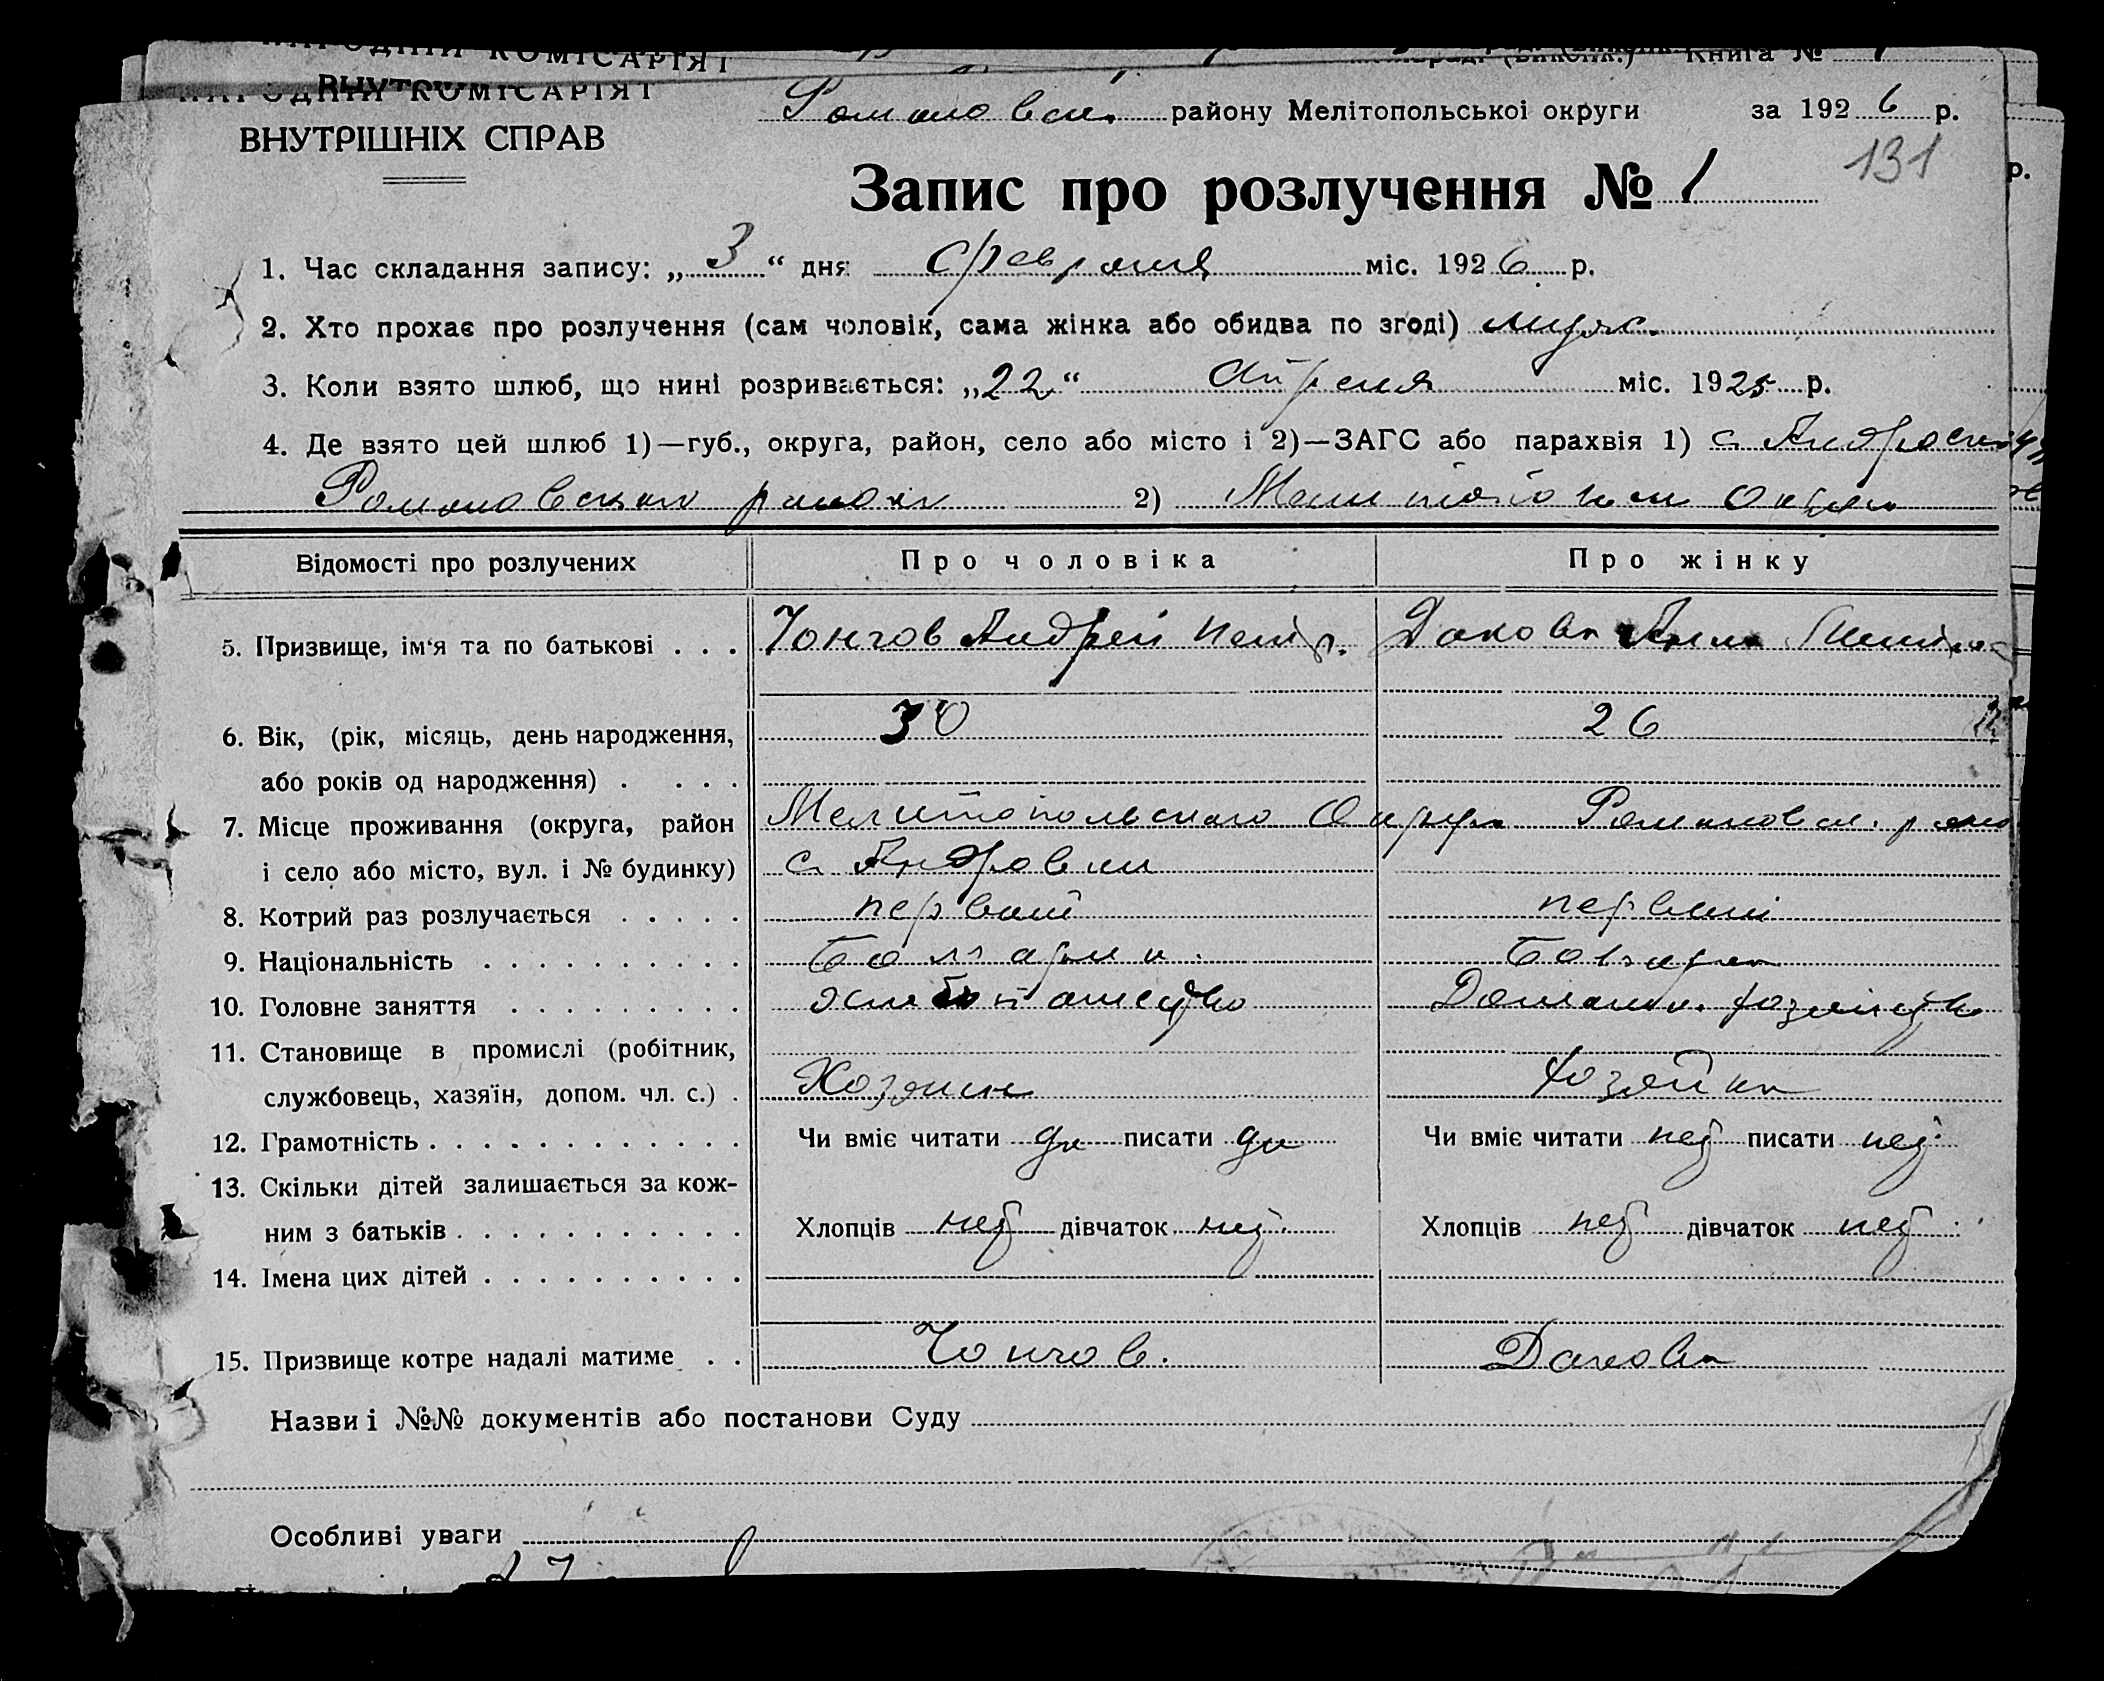 НАРОДНІЙ КОМІСАРІЯТ
Книга №
НАРОДНІЙ КОМІСАРІЯТ
ВНУТРІШНІХ СПРАВ
Романовск. району Мелітопольської округи за 1926 р.
131
Запис про розлучення № 1
1. Час складання запису: „3“ дня февраля міс. 1926 р.
2. Хто прохає про розлучення (сам чоловік, сама жінка або обидва по згоді) муж.
3. Коли взято шлюб, що нині розривається: „22“ Апреля міс. 1925 р.
4. Де взято цей шлюб 1)—губ., округа, район, село або місто і 2)—ЗАГС або парахвія 1) с
Романовского 2)
Відомості про розлучених Про чоловіка Про жінку
5. Призвище, ім‘я та по батькові . . . Чонгов Андрей Петр. Дакова Анна
6. Вік, (рік, місяць, день народження, 30 26
або років од народження) . . . .
7. Місце проживання (округа, район Мелитопольского Округа Романовск.
і село або місто, вул. і № будинку) с Андровки
8. Котрий раз розлучається . . . . . первый первый
9. Національність . . . . . . . . . . Болгарин. Болгарка
10. Головне заняття . . . . . . . . . хлебопашество Домашн. хозяйство
11. Становище в промислі (робітник,
службовець, хазяїн, допом. чл. с.) . Хозяин хозяйка
12. Грамотність . . . . . . . . . . . . . Чи вміє читати да писати да Чи вміє читати нет писати нет
13. Скільки дітей залишається за кож-
ним з батьків . . . . . . . . . . . . Хлопців нет дівчаток нет Хлопців нет дівчаток нет
14. Імена цих дітей . . . . . . . . . .
15. Призвище котре надалі матиме . . Чонгов. Дакова
Назви і №№ документів або постанови Суду
Особливі уваги